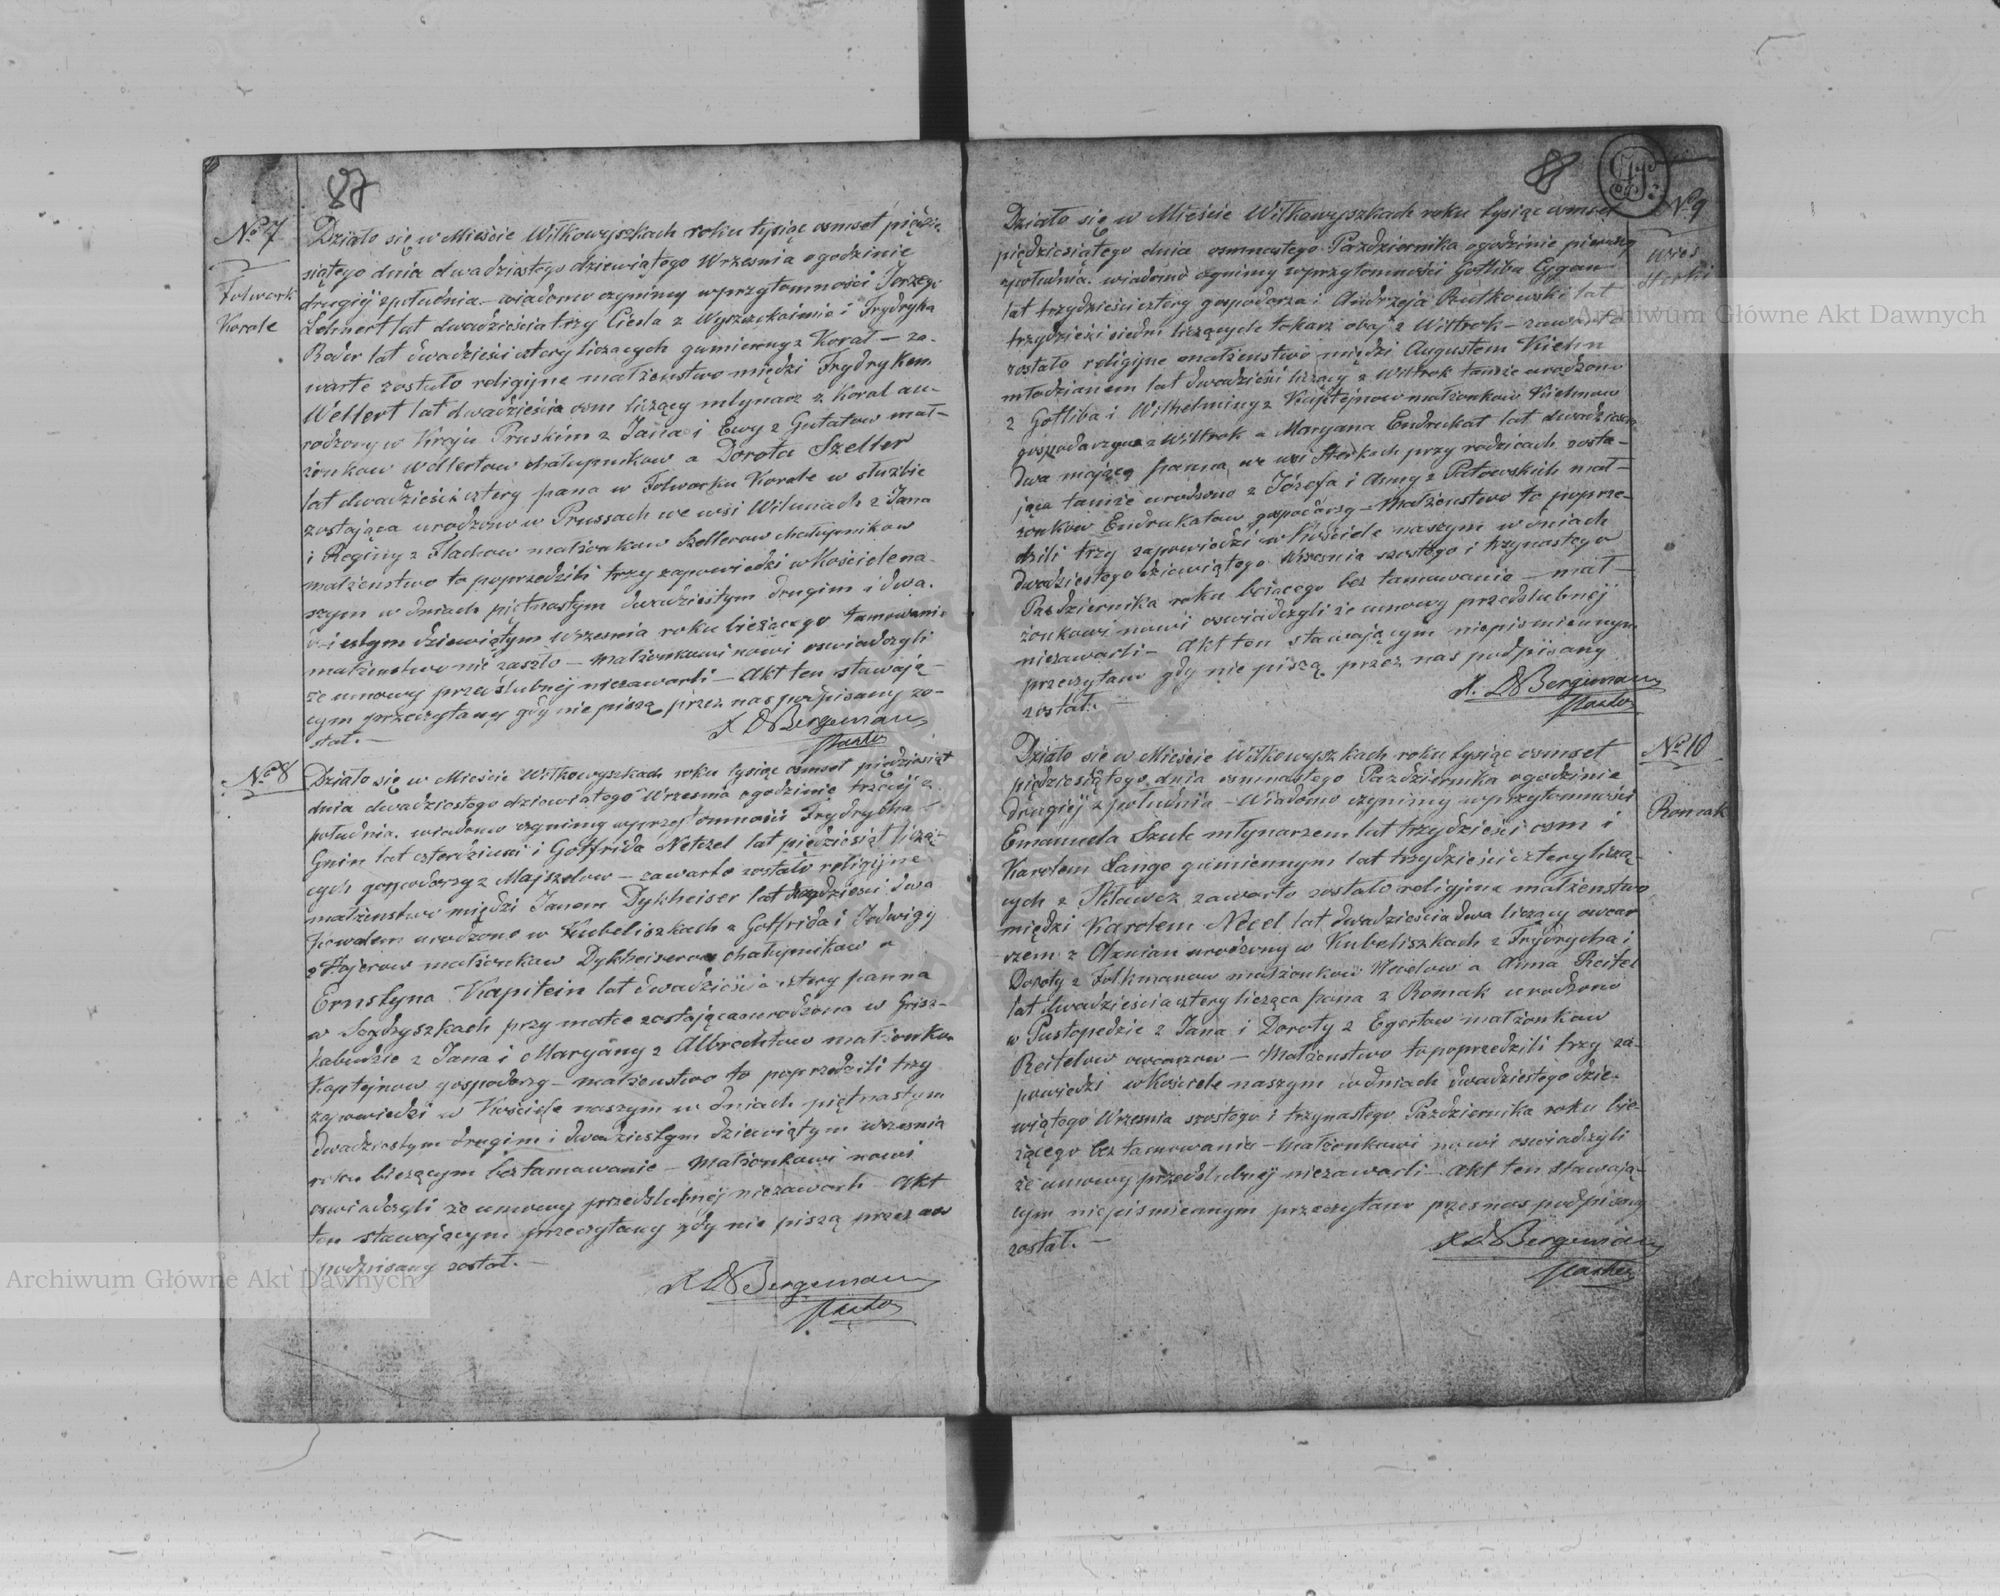 87
No 7
Folwark
Korale
Działo się w Mieście Wiłkowyszkach roku tysiąc osmset pięćdzie
siątego dnia dwadziestego dziewiątego Wrzesnia o godzinie
drugiéj zpołudnia — wiadomo czynimy wprzytomności Jerzego
Lehnert lat dwadzieścia trzy Ciesla z i Frydryka
Reder lat dwadzieści cztery liczących gumienny z Koral — za-
warte zostało religijne małżenstwo między Frydrykem
Wellert lat dwadzieścia osm liczący mlynarz z Koral au-
rodzony w Kraju Pruskim z Jana i Ewy z Gutatow mał-
żonkow Wellertow chałupnikow a Dorota Szeller
lat dwadzieści cztery pana w Folwarku Korale w służbie
zostająca urodzono w Prussach we wsi Wilunach z Jana
i Reginy z Flachow małżonkow Szellerow chałupnikow
małżenstwo to poprzedzili trzy zapowiedzi w Kościele na-
szym w dniach piętnastym dwadziestym drugim i dwa-
dziestym dziewiątym Wrzesnia roku bieżącego tamowanie
małżenstwo nie zaszło — Małżonkowi nowi oswiadczyli
że umowy przedślubnéj niezawarli — Akt ten stawają-
cym przeczytany gdy nie piszą przez nas podpisany zo-
stał. —
X D Bergeman
Pastor
No 8
Działo się w Mieście Wiłkowyszkach roku tysiąc osmset pięćdziesiąt
dnia dwadziestego dziewiątego Wrzesnia o godzinie trzeciéj z
południa, wiadomo czynimy wprzytomności Frydryka
Gnin lat czterdziesci i Gotfrida Netzel lat pięćdziesiąt liczą-
cych gospodarzy z Majszelow — zawarto zostało religijne
małżenstwo między Janem Dykheiser lat trzydzieści dwa
urodzono w Kubeliszkach z Gotfrida i Jedwigy
z Hajerow małżonkow Dykheiserow chałupnikow a
Ernstyna Kapitein lat dwadzieścia cztery panna
w przy matce zostająca urodzona w Grisz-
kabudzie z Jana i Maryanny z Albrechtow małżonkow
Kaptejnow gospodarzy — małżenstwo to poprzedzili trzy
zapowiedzi w Kościele naszym w dniach piętnastym
dwadziestym drugim i dwadziestym dziewiątym wrzesnia
roku bieżącym bez tamowanie — Małżonkowi nowi
oswiadczyli że umowy przedslubnéj niezawarli — Akt
ten stawającym przeczytany gdy nie piszą przez nas
podpisany został. —
X D Bergeman
Pastor
88
No 9
Wieś
Działo się w Mieście Wiłkowyszkach roku tysiąc osmset
pięćdziesiątego dnia osmnastego Pazdziernika o godzinie pierwszy
zpołudnia. wiadomo czynimy wprzytomności Gotliba Cygan
lat trzydzieści cztery gospodarza i Andrzeja Rutkowski lat
trzydzieści siedm liczących tokarz obaj z Wiłtrok — zawarto
zostało religijne małżenstwo między Augustem Kiehn
młodzianem lat dwadzieści liczący z Wiltrok tamże urodzono
z Gotliba i Wilhelminy z Kaptejnow małżonkow Kiehnow
gospodarzy z Wiltrok a Maryana Endrukat lat dwadzieścia
dwa mającą panna we wsi przy rodzicach zosta-
jąca tamże urodzono z Józefa i Anny z Patowskich mał-
żonkow Endrukatow gospodarzy — Małżenstwo to poprze-
dzili trzy zapowiedzi w Kościele naszym w dniach
dwadziestego dziewiątego Wrzesnia szostego i trzynastego
Pazdziernika roku bieżącego bez tamowanie — mał-
żonkowi nowi oswiadczyli że umowy przedslubnéj
niezawarli — Akt ten stawającym niepismiennym
przeczytano gdy nie piszą przez nas podpisany
został. —
X. D Bergeman
Pastor
No 10
Romak
Działo się w Mieście Wiłkowyszkach roku tysiąc osmset
pięćdziesiątego dnia osmnastego Pazdziernika o godzinie
drugiéj z południa — Wiadomo czynimy wprzytomności
Emanuela Szulc młynarzem lat trzydzieści osm i
Karolem Lange gumiennym lat trzydzieści cztery liczą-
cych z zawarto zostało religijne małżenstwo
między Karolem Necel lat dwadzieścia dwa liczący owcar
zem z urodzony w Kubeliszkach z Frydrycha i
Doroty z Folkmanow małżonkow Necelow a Anna Reitel
lat dwadzieścia cztery licząca pana z Romak urodzono
w Pustopedzie z Jana i Doroty z Egertow małżonkow
Reitelow owczarzow — Małżenstwo to poprzedzili trzy za-
powiedzi w Kościele naszym w dniach dwadziestego dzie-
wiątego Wrzesnia szostego i trzynastego Pazdziernika roku bie-
żącego bez tamowanie — Małżonkowi nowi oswiadczyli
że umowy przedslubnéj niezawarli — Akt ten stawają-
cym niepismiennym przeczytano przez nas podpisany
został. —
X D Bergeman
Pastor
Archiwum Główne Akt Dawnych
Archiwum Główne Akt Dawnych